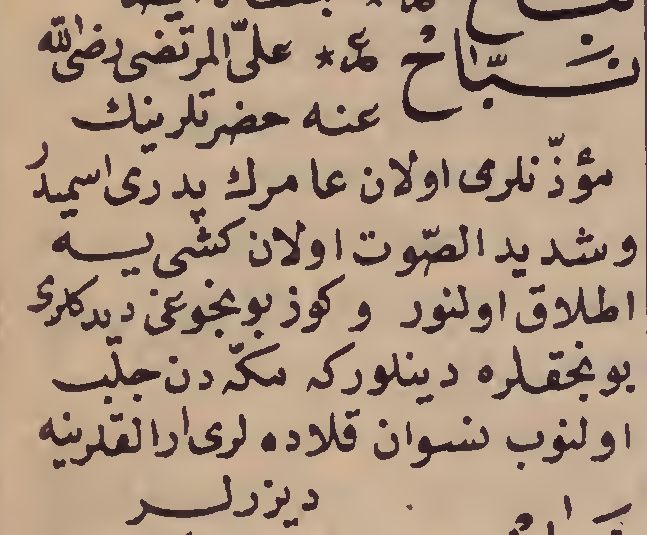 نَبَّاحْ ع * عليّ المرتضى رضى الله
عنه حضرتلرينك
مؤذّنلرى اولان عامرك پدرى اسميدر
وشديد الصّوت اولان كشى يه
اطلاق اولنور وكوز بونجوغى ديدكلرى
بونجقلره دينلور كه مكّه دن جلب
اولنوب نسوان قلاده لرى ارالقلرينه
ديزرلر